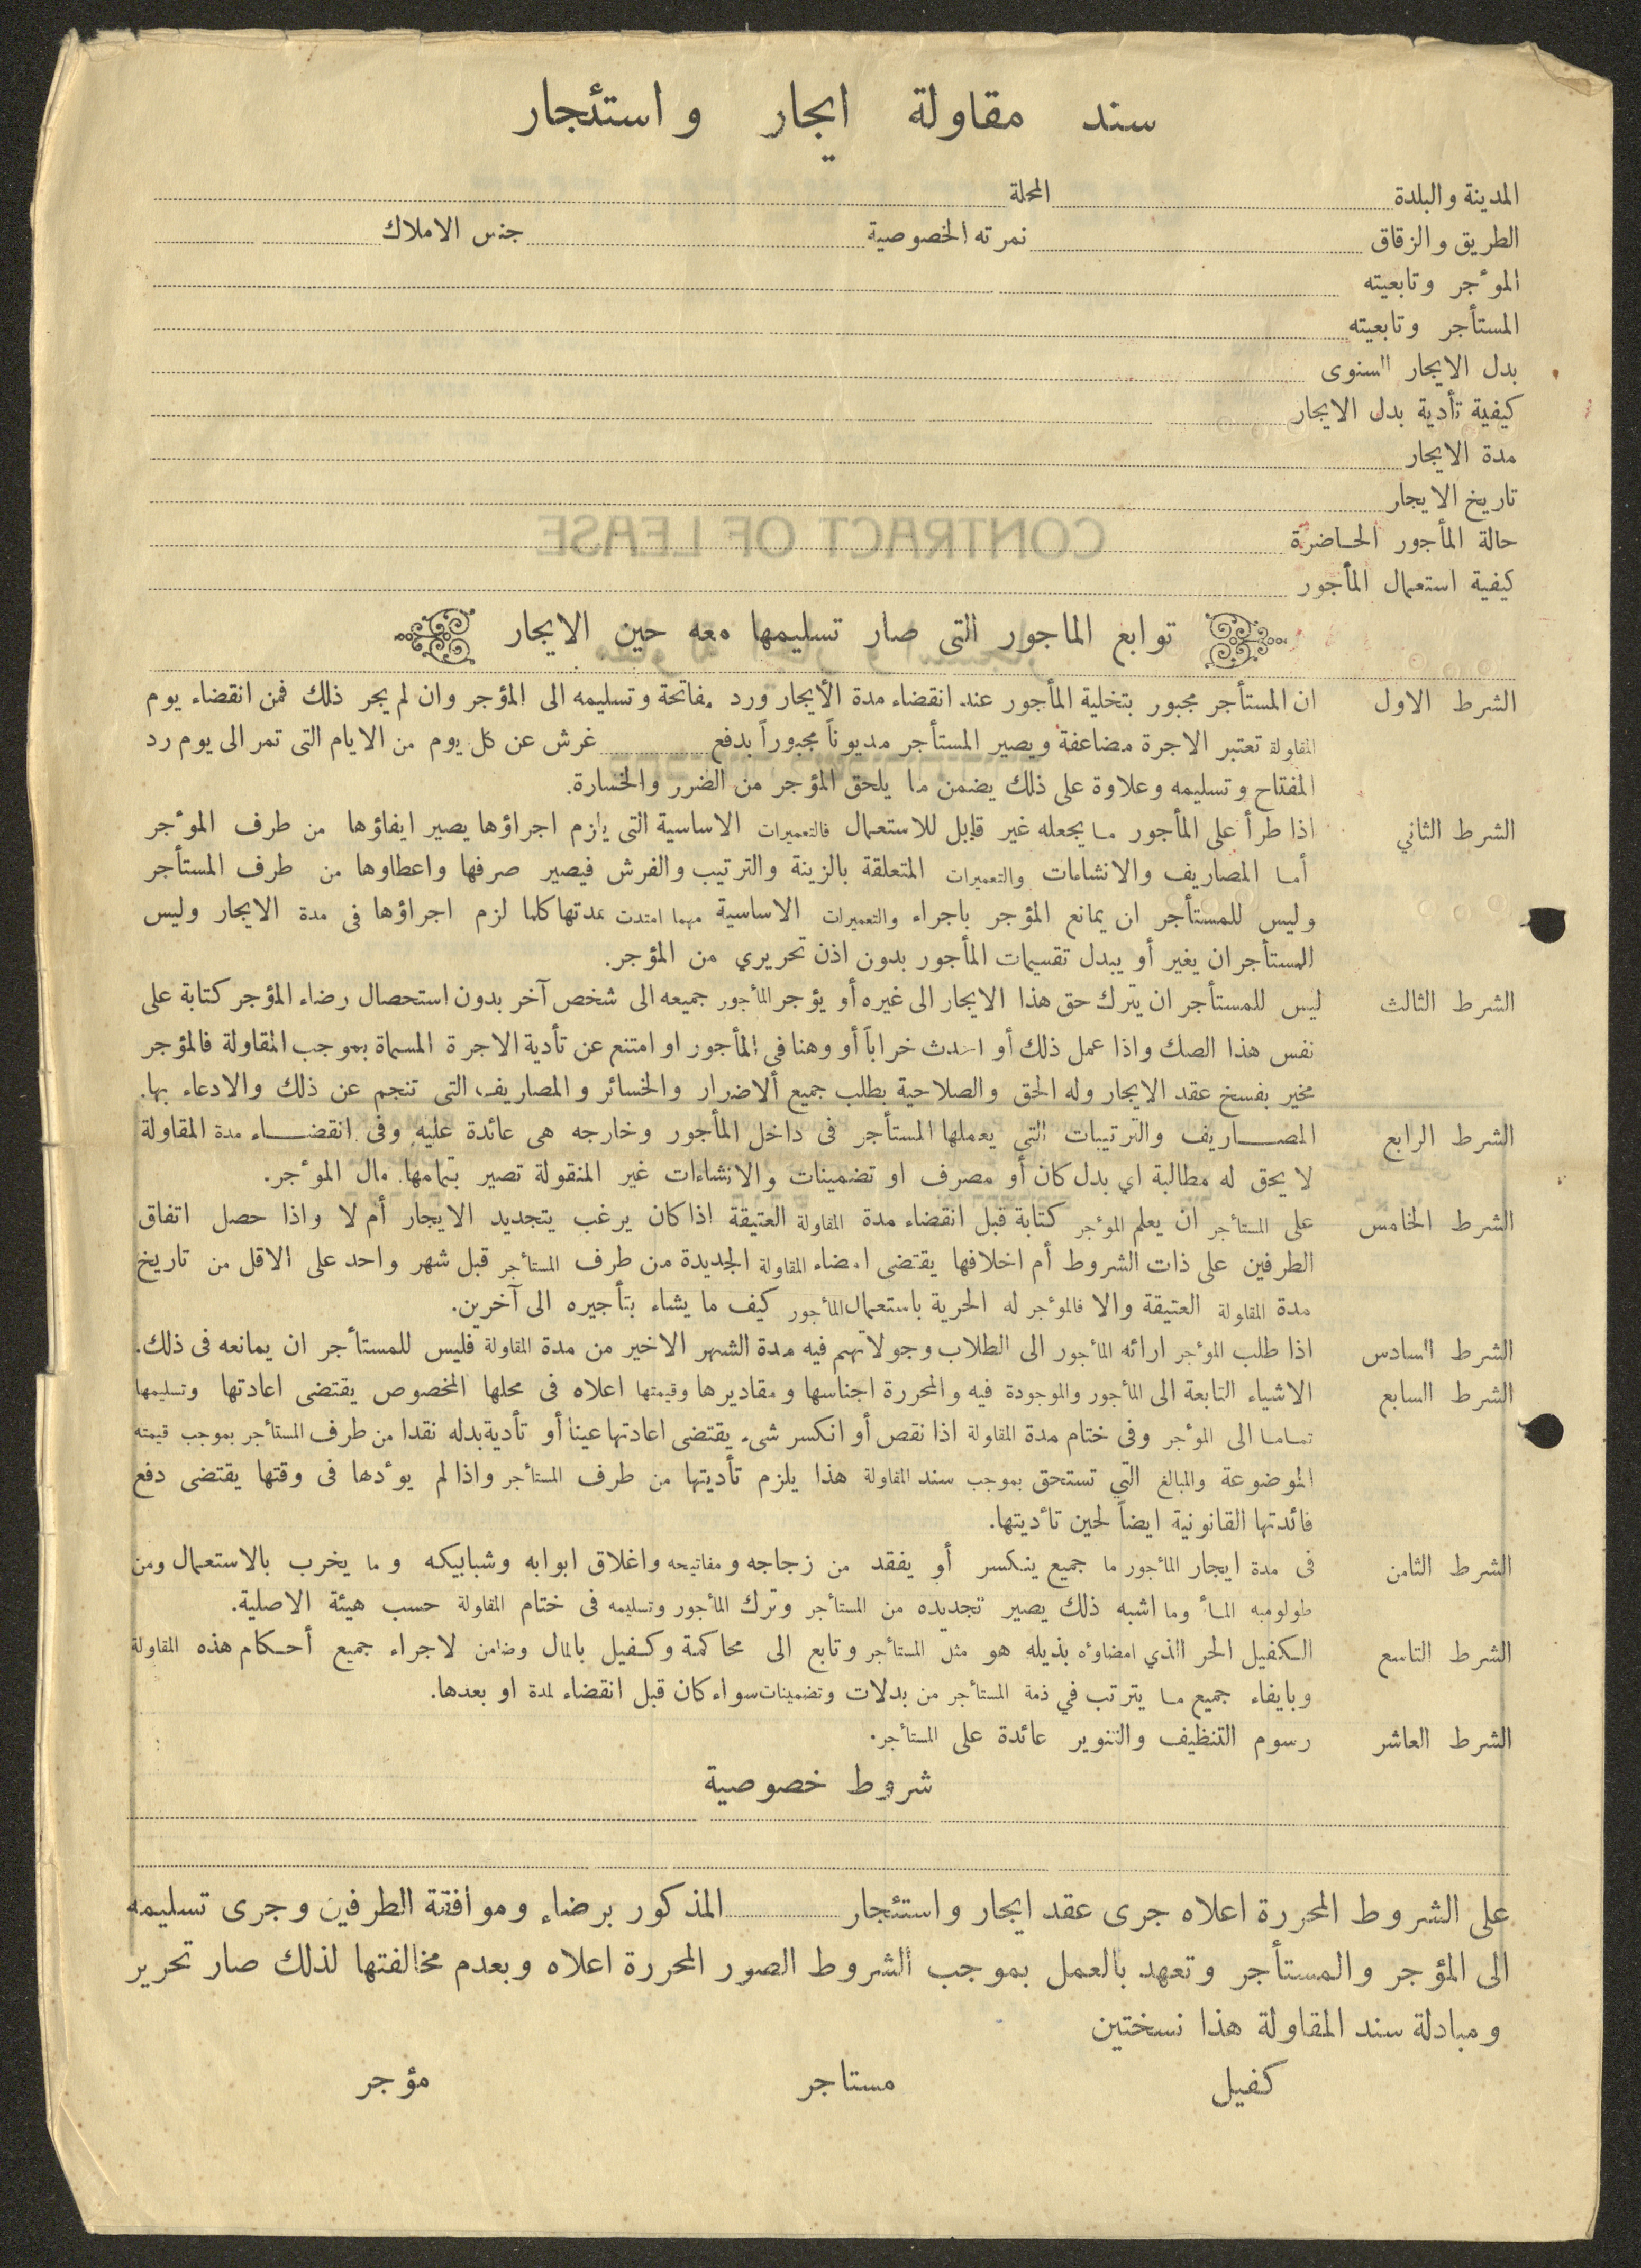 سند مقاولة ايجار واستئجار
المدينة والبلدة المحلة
الطريق والزقاق نمرته الخصوصية جنس الاملاك
الموٴجر وتابعيته
المستأجر وتابعيته
بدل الايجار السنوى
كيفية تأدية بدل الايجار
مدة الايجار
تاريخ الايجار
حالة المأجور الحاضرة
CONTRACT OF LEASE
كيفية استعمال المأجور
توابع الماجور التى صار تسليمها معه حين الايجار
الشرط الاول ان المستأجر مجبور بتخلية المأجور عند انقضاء مدة الأيجار ورد مفاتحة وتسليمه الى المؤجر وان لم يجر ذلك فمن انقضاء يوم
المقاولة تعتبر الاجرة مضاعفة ويصير المستأجر مديوناً مجبوراً بدفع غرش عن كل يوم من الايام التى تمر الى يوم رد
المفتاح وتسليمه وعلاوة على ذلك يضمن ما يلحق المؤجر من الضرر والخسارة.
الشرط الثاني اذا طرأ على المأجور ما يجعله غير قابل للاستعمال فالتعميرات الاساسية التى يلزم اجراؤها يصير ايفاؤها من طرف الموٴجر
أما المصاريف والانشاءات والتعميرات المتعلقة بالزينة والترتيب والفرش فيصير صرفها واعطاوها من طرف المستأجر
وليس للمستأجر ان يمانع المؤجر باجراء والتعميرات الاساسية مهما امتدت بمدتها كلما لزم اجراؤها فى مدة الايجار وليس
المستأجر ان يغير أو يبدل تقسيمات المأجور بدون اذن تحريري من المؤجر.
الشرط الثالث ليس للمستأجر ان يترك حق هذا الايجار الى غيره أو يؤجر المأجور جميعه الى شخص آخر بدون استحصال رضاء المؤجر كتابة على
نفس هذا الصك واذا عمل ذلك أو احدث خراباً أو وهنا فى المأجور او امتنع عن تأدية الاجرة المسماة بموجب المقاولة فالمؤجر
مخير بفسخ عقد الايجار وله الحق والصلاحية بطلب جميع ألاضرار والخسائر والمصاريف التى تنجم عن ذلك والادعاء بها.
الشرط الرابع المصاريف والترتيبات التي يعملها المستأجر فى داخل المأجور وخارجه هى عائدة عليه وفى انقضاء مدة المقاولة
لا يحق له مطالبة اي بدل كان أو مصرف او تضمينات والانشاءات غير المنقولة تصير بتمامها مال الموٴجر.
الشرط الخامس على المستأجر ان يعلم الموٴجر كتابة قبل انقضاء مدة المقاولة العتيقة اذا كان يرغب يتجديد الايجار أم لا واذا حصل اتفاق
الطرفين على ذات الشروط أم اخلافها يقتضى امضاء المقاولة الجديدة من طرف المستأجر قبل شهر واحد على الاقل من تاريخ
مدة المقاولة العتيقة والا فالموٴجر له الحرية باستعمال المأجور كيف ما يشاء بتأجيره الى آخرين.
الشرط السادس اذا طلب الموٴجر ارائه المأجور الى الطلاب وجولاتهم فيه مدة الشهر الاخير من مدة المقاولة فليس للمستأجر ان يمانعه فى ذلك.
الشرط السابع الاشياء التابعة الى المأجور والموجودة فيه والمحررة اجناسها ومقاديرها وقيمتها اعلاه فى محلها المخصوص يقتضى اعادتها وتسليمها
تماما الى الموٴجر وفى ختام مدة المقاولة اذا نقص أو انكسر شىء يقتضى اعادتها عينا أو تأدية بدله نقدا من طرف المستأجر بموجب قيمته
الموضوعة والمبالغ التي تستحق بموجب سند المقاولة هذا يلزم تأديتها من طرف المستأجر واذا لم يوٴدها فى وقتها يقتضى دفع
فائدتها القانونية ايضاً لحين تأديتها.
الشرط الثامن فى مدة ايجار المأجور ما جميع ينكسر أو يفقد من زجاجه ومفاتيحه واغلاق ابوابه وشبابيكه وما يخرب بالاستعمال ومن
طولومبه المأ وما اشبه ذلك يصير تجديده من المستأجر وترك المأجور وتسليمه فى ختام المقاولة حسب هيئة الاصلية.
الشرط التاسع الكفيل الحر الذي امضاوٴه بذيله هو مثل المستأجر وتابع الى محاكمة وكفيل بالمال وضامن لاجراء جميع أحكام هذه المقاولة
وبايفاء جميع ما يترتب في ذمة المستأجر من بدلات وتضمينات سواء كان قبل انقضاء لمدة او بعدها.
الشرط العاشر رسوم التنظيف والتنوير عائدة على المستأجر.
شروط خصوصية
على الشروط المحررة اعلاه جرى عقد ايجار واستئجار المذكور برضاء وموافقة الطرفين وجرى تسليمه
الى المؤجر والمستأجر وتعهد بالعمل بموجب الشروط الصور المحررة اعلاه وبعدم مخالفتها لذلك صار تحرير
ومبادلة سند المقاولة هذا نسختين
كفيل مستاجر مؤجر